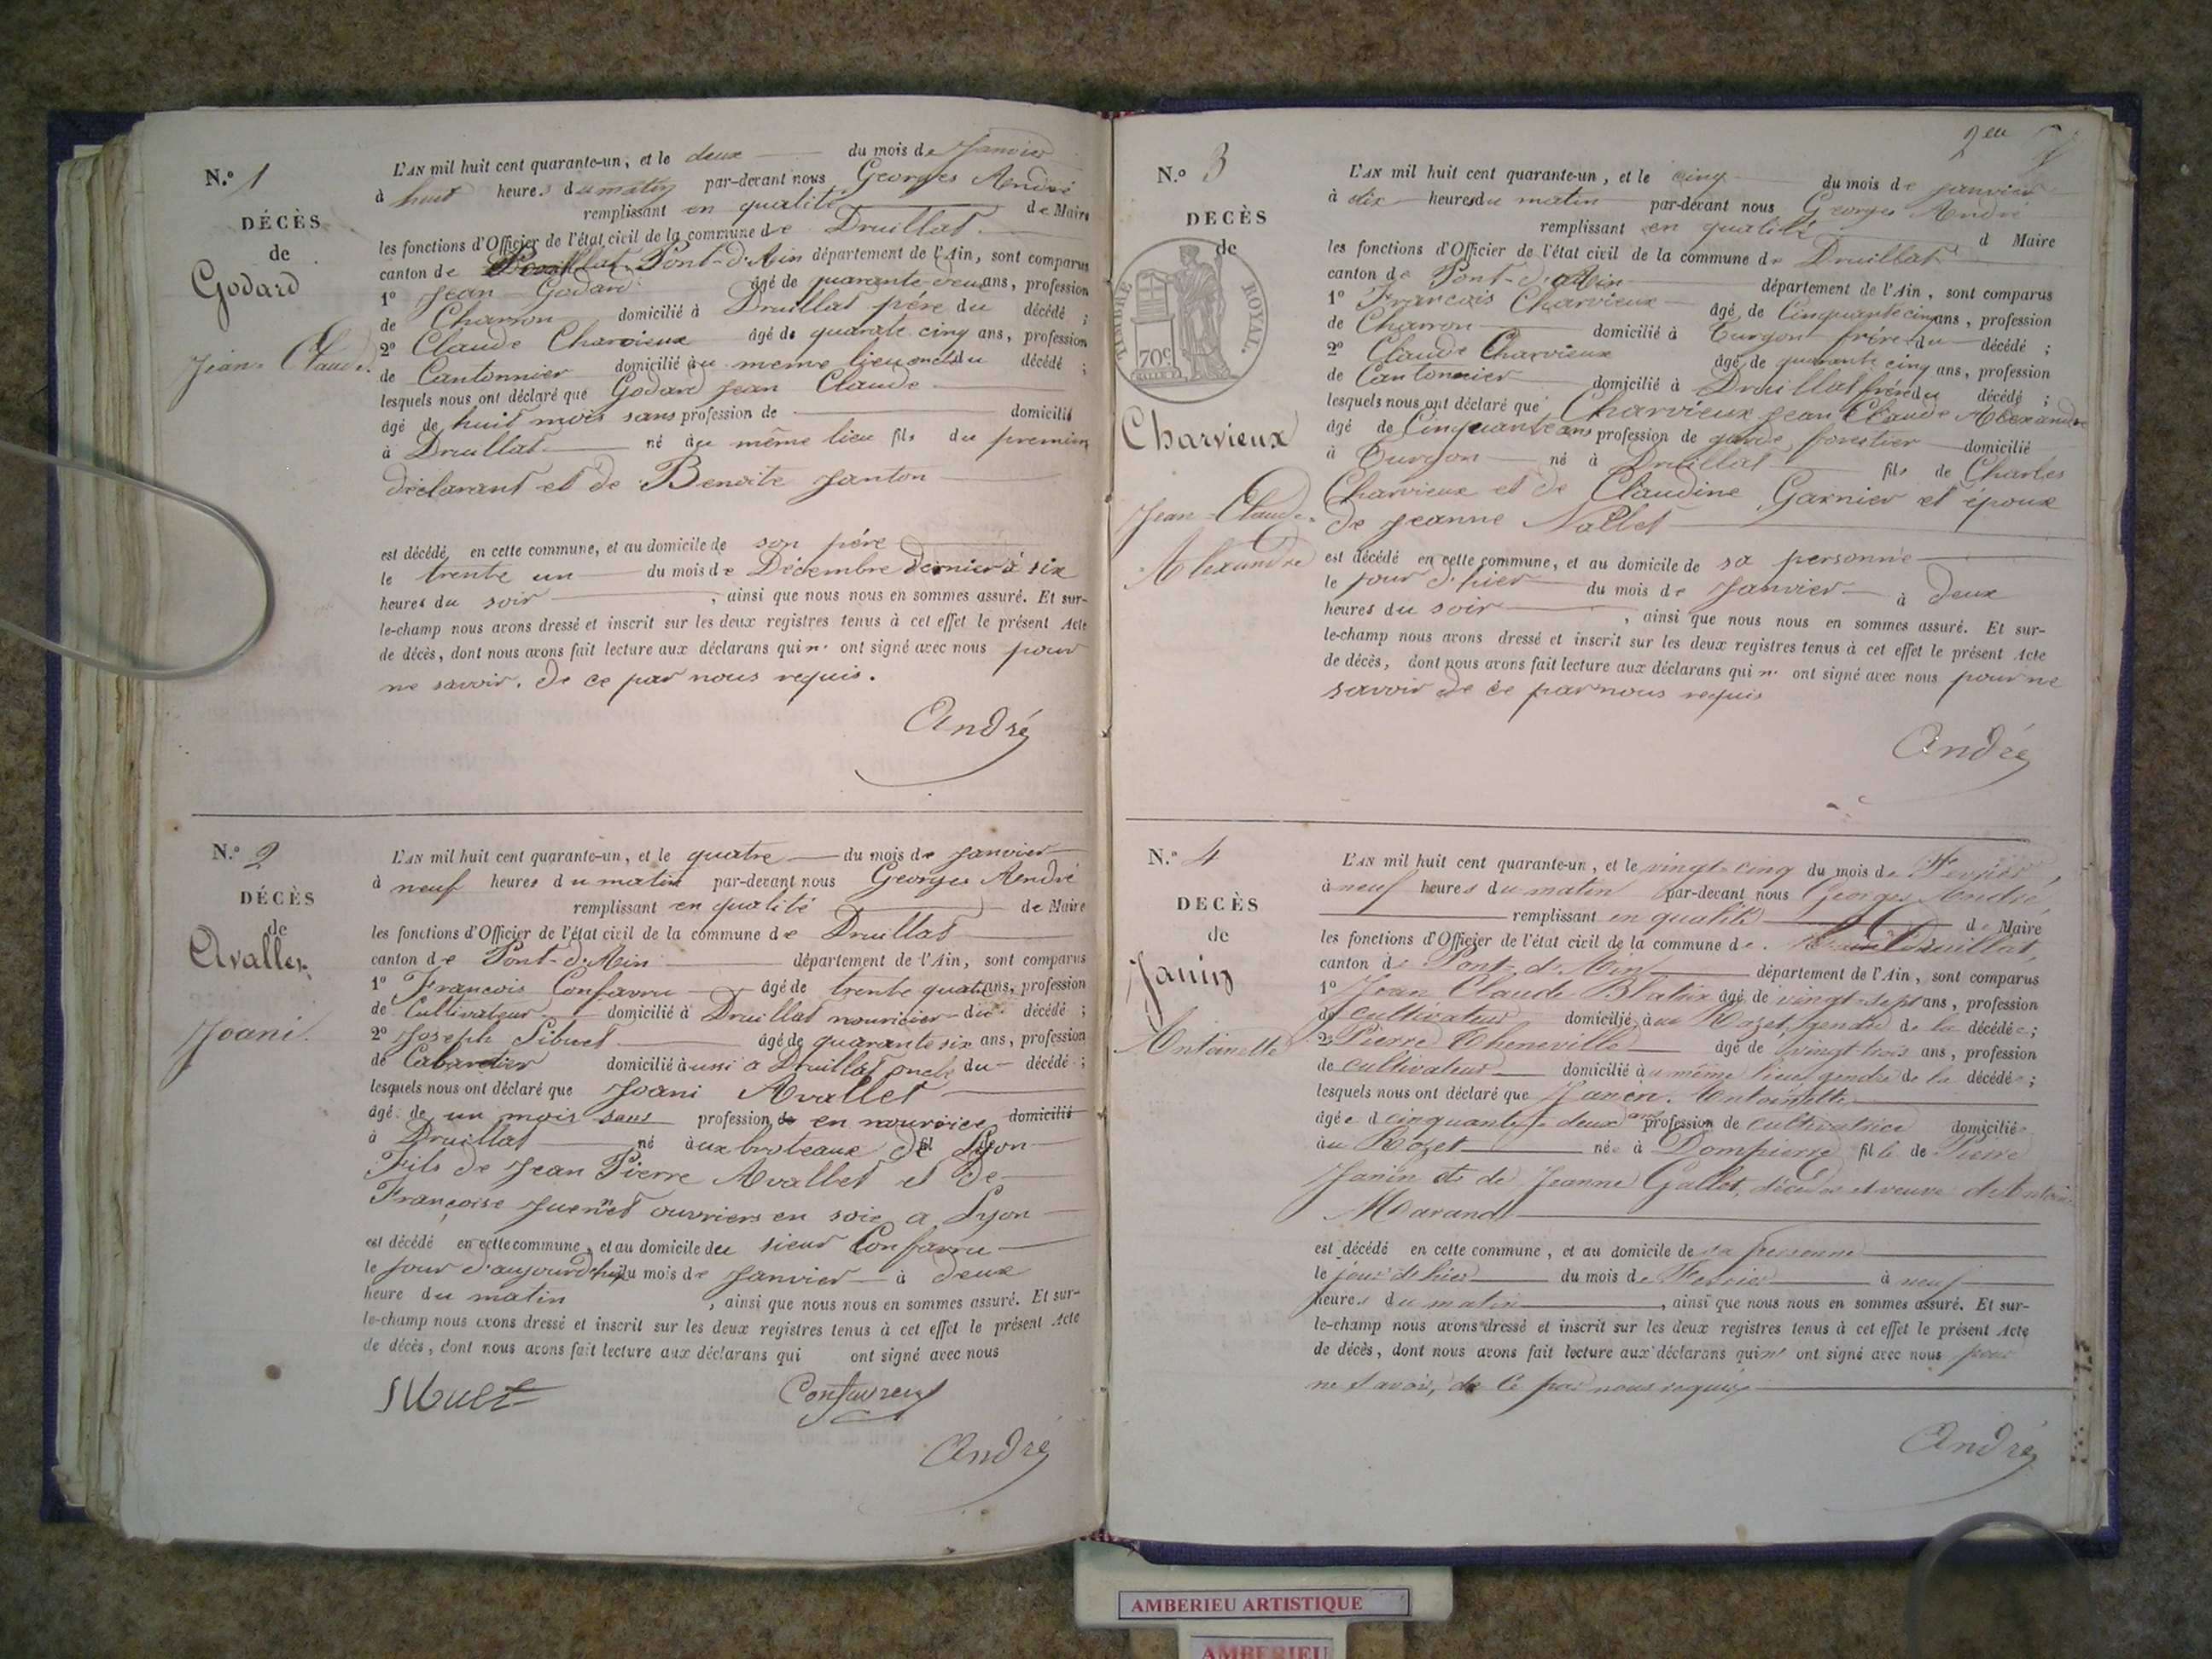 N.º 1
DÉCÈS
de
Godard
Jean Claude
L'AN mil huit cent quarante-un, et le deux du mois de Janvier
à huit heures du matin par-devant nous Georges André
remplissant en qualité de Maire
les fonctions d'Officier de l'état civil de la commune de Druillat
canton de Pont-d'Ain département de l'Ain, sont comparus
1º Jean Godard âgé de quarante-deux ans, profession
de Charron domicilié à Druillat père du décédé ;
2º Claude Charvieux âgé de quarante cinq ans, profession
de Cantonnier domicilié au meme lieu oncle du décédé ;
lesquels nous ont déclaré que Godard Jean Claude
âgé de huit mois sans profession de domicilié
à Druillat né au même lieu fils du premier
déclarant et de Benoite Janton
est décédé en cette commune, et au domicile de son père
le trente un du mois de Décembre dernier à six
heures du soir , ainsi que nous nous en sommes assuré. Et sur-
le-champ nous avons dressé et inscrit sur les deux registres tenus à cet effet le présent Acte
de décès, dont nous avons fait lecture aux déclarans qui n' ont signé avec nous pour
ne savoir. de ce par nous requis.
André
N.º 2
DÉCÈS
de
Avallet
Joani
L'AN mil huit cent quarante-un, et le quatre du mois de Janvier
à neuf heures du matin par-devant nous Georges André
remplissant en qualité de Maire
les fonctions d'Officier de l'état civil de la commune de Druillat
canton de Pont-d'Ain département de l'Ain, sont comparus
1º Francois Confavru âgé de trente quatre ans, profession
de Cultivateur domicilié à Druillat nouricier du décédé ;
2º Joseph Sibuet âgé de quarante six ans, profession
de Cabaretier domicilié aussi a Druillat oncle du décédé ;
lesquels nous ont déclaré que Joani Avallet
âgé de un mois sans profession de en nourrice domicilié
à Druillat né aux broteaux de Lyon
Fils de Jean Pierre Avallet et de
Françoise Juennet ouvriers en soie a Lyon
est décédé en cette commune, et au domicile du sieur Confavru
le jour d'aujourd'hui du mois de Janvier à deux
heure du matin , ainsi que nous nous en sommes assuré. Et sur-
le-champ nous avons dressé et inscrit sur les deux registres tenus à cet effet le présent Acte
de décès, dont nous avons fait lecture aux déclarans qui ont signé avec nous
Sibuet Confavreux
André
N.º 3
DECÈS
de
TIMBRE ROYAL.
70c
Charvieux
Jean-Claude
Alexandre
L'AN mil huit cent quarante-un, et le cinq du mois de janvier
à dix heures du matin par-devant nous Georges André
remplissant en qualité d Maire
les fonctions d'Officier de l'état civil de la commune de Druillat
canton de Pont-d'Ain département de l'Ain, sont comparus
1º Francois Charvieux âgé de Cinquante cinq ans, profession
de Charron domicilié à Turgon frère du décédé ;
2º Claude Charvieux âgé de quarante cinq ans, profession
de Cantonnier domicilié à Druillat frère du décédé ;
lesquels nous ont déclaré que Charvieux Jean Claude Alexandre
âgé de Cinquante ans profession de garde forestier domicilié
à Turgon né à Druillat fils de Charles
Charvieux et de Claudine Garnier et époux
de Jeanne Nallet
est décédé en cette commune, et au domicile de sa personne
le jour d'hier du mois de Janvier à deux
heures du soir , ainsi que nous nous en sommes assuré. Et sur-
le-champ nous avons dressé et inscrit sur les deux registres tenus à cet effet le présent Acte
de décès, dont nous avons fait lecture aux déclarans qui n' ont signé avec nous pour ne
savoir de ce par nous requis
André
N.º 4
DECÈS
de
Janin
Antoinette
L'AN mil huit cent quarante-un, et le vingt-cinq du mois de Fevrier,
à neuf heures du matin par-devant nous Georges André,
remplissant en qualité de Maire
les fonctions d'Officier de l'état civil de la commune de Druillat,
canton de Pont-d'Ain département de l'Ain, sont comparus
1º Jean Claude Blatrix âgé de vingt-sept ans, profession
de cultivateur domicilié au Rozet, gendre de la décédée ;
2º Pierre Theneville âgé de vingt-trois ans, profession
de cultivateur domicilié au même lieu gendre de la décédée ;
lesquels nous ont déclaré que Janin Antoinette
âgée d cinquante deux ans profession de cultivatrice domiciliée
au Rozet née à Dompierre fille de Pierre
Janin et de Jeanne Gallet, décédés et veuve de Antoine
Marand
est décédé en cette commune, et au domicile de sa personne
le jour d'hier du mois de Fevrier à neuf
heures du matin , ainsi que nous nous en sommes assuré. Et sur-
le-champ nous avons dressé et inscrit sur les deux registres tenus à cet effet le présent Acte
de décès, dont nous avons fait lecture aux déclarans qui n' ont signé avec nous pour
ne savoir, de ce par nous requis
André
AMBERIEU ARTISTIQUE
AMBERIEU